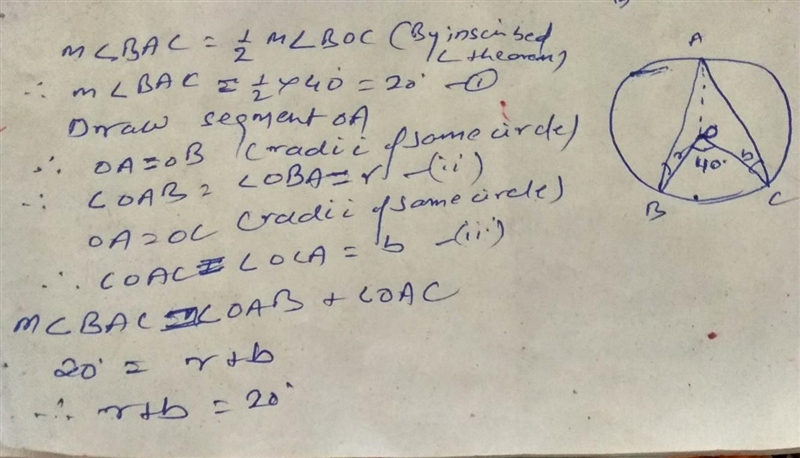 m∠BAC = 1/2 m∠BOC (By inscribed
∠ theorem)
∴ m∠BAC = 1/2 × 40 = 20° —①
Draw segment OA
∴ OA = OB (radii of same circle)
∴ ∠OAB = ∠OBA = r —(ii)
OA = OC (radii of same circle)
∴ ∠OAC = ∠OCA = b —(iii)
m∠BAC = ∠OAB + ∠OAC
20° = r+b
∴ r+b = 20°
A
O
r
40°
b
B
C